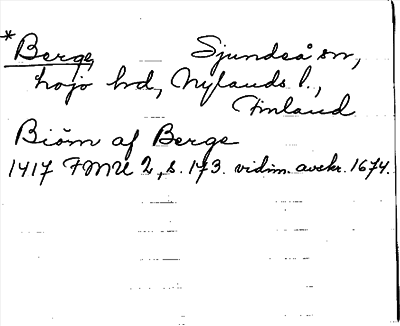 *Berge Sjundeå sn,
Lojo hd, Nylands l.,
Finland
Biöm af Berge
1417 FMU 2, s. 173. vidim. avskr. 1674.